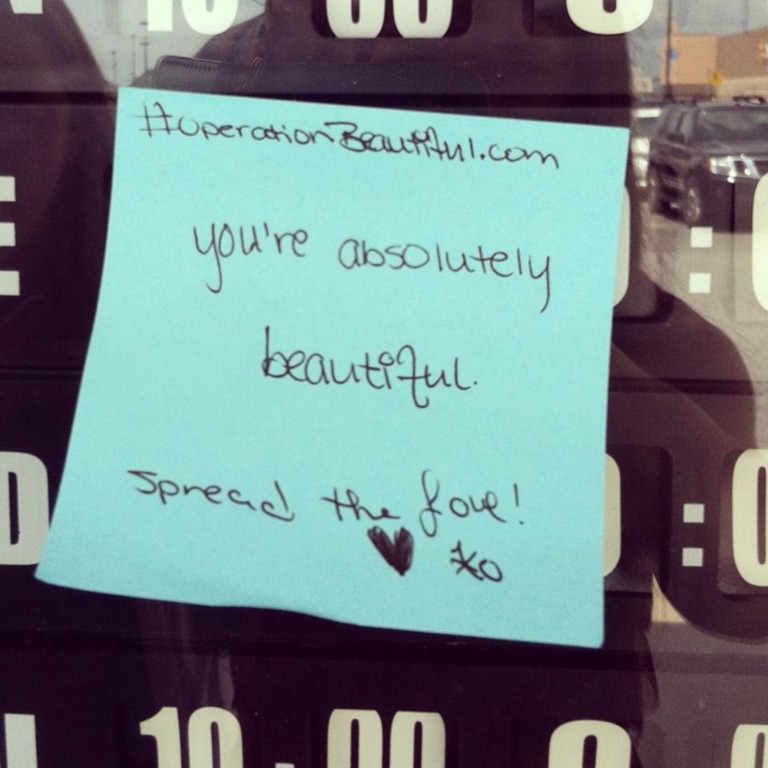 10 00
#operationBeautiful.com
you're absolutely
: 0
beautiful.
spread the love!
D : 0
xo
10 : 00